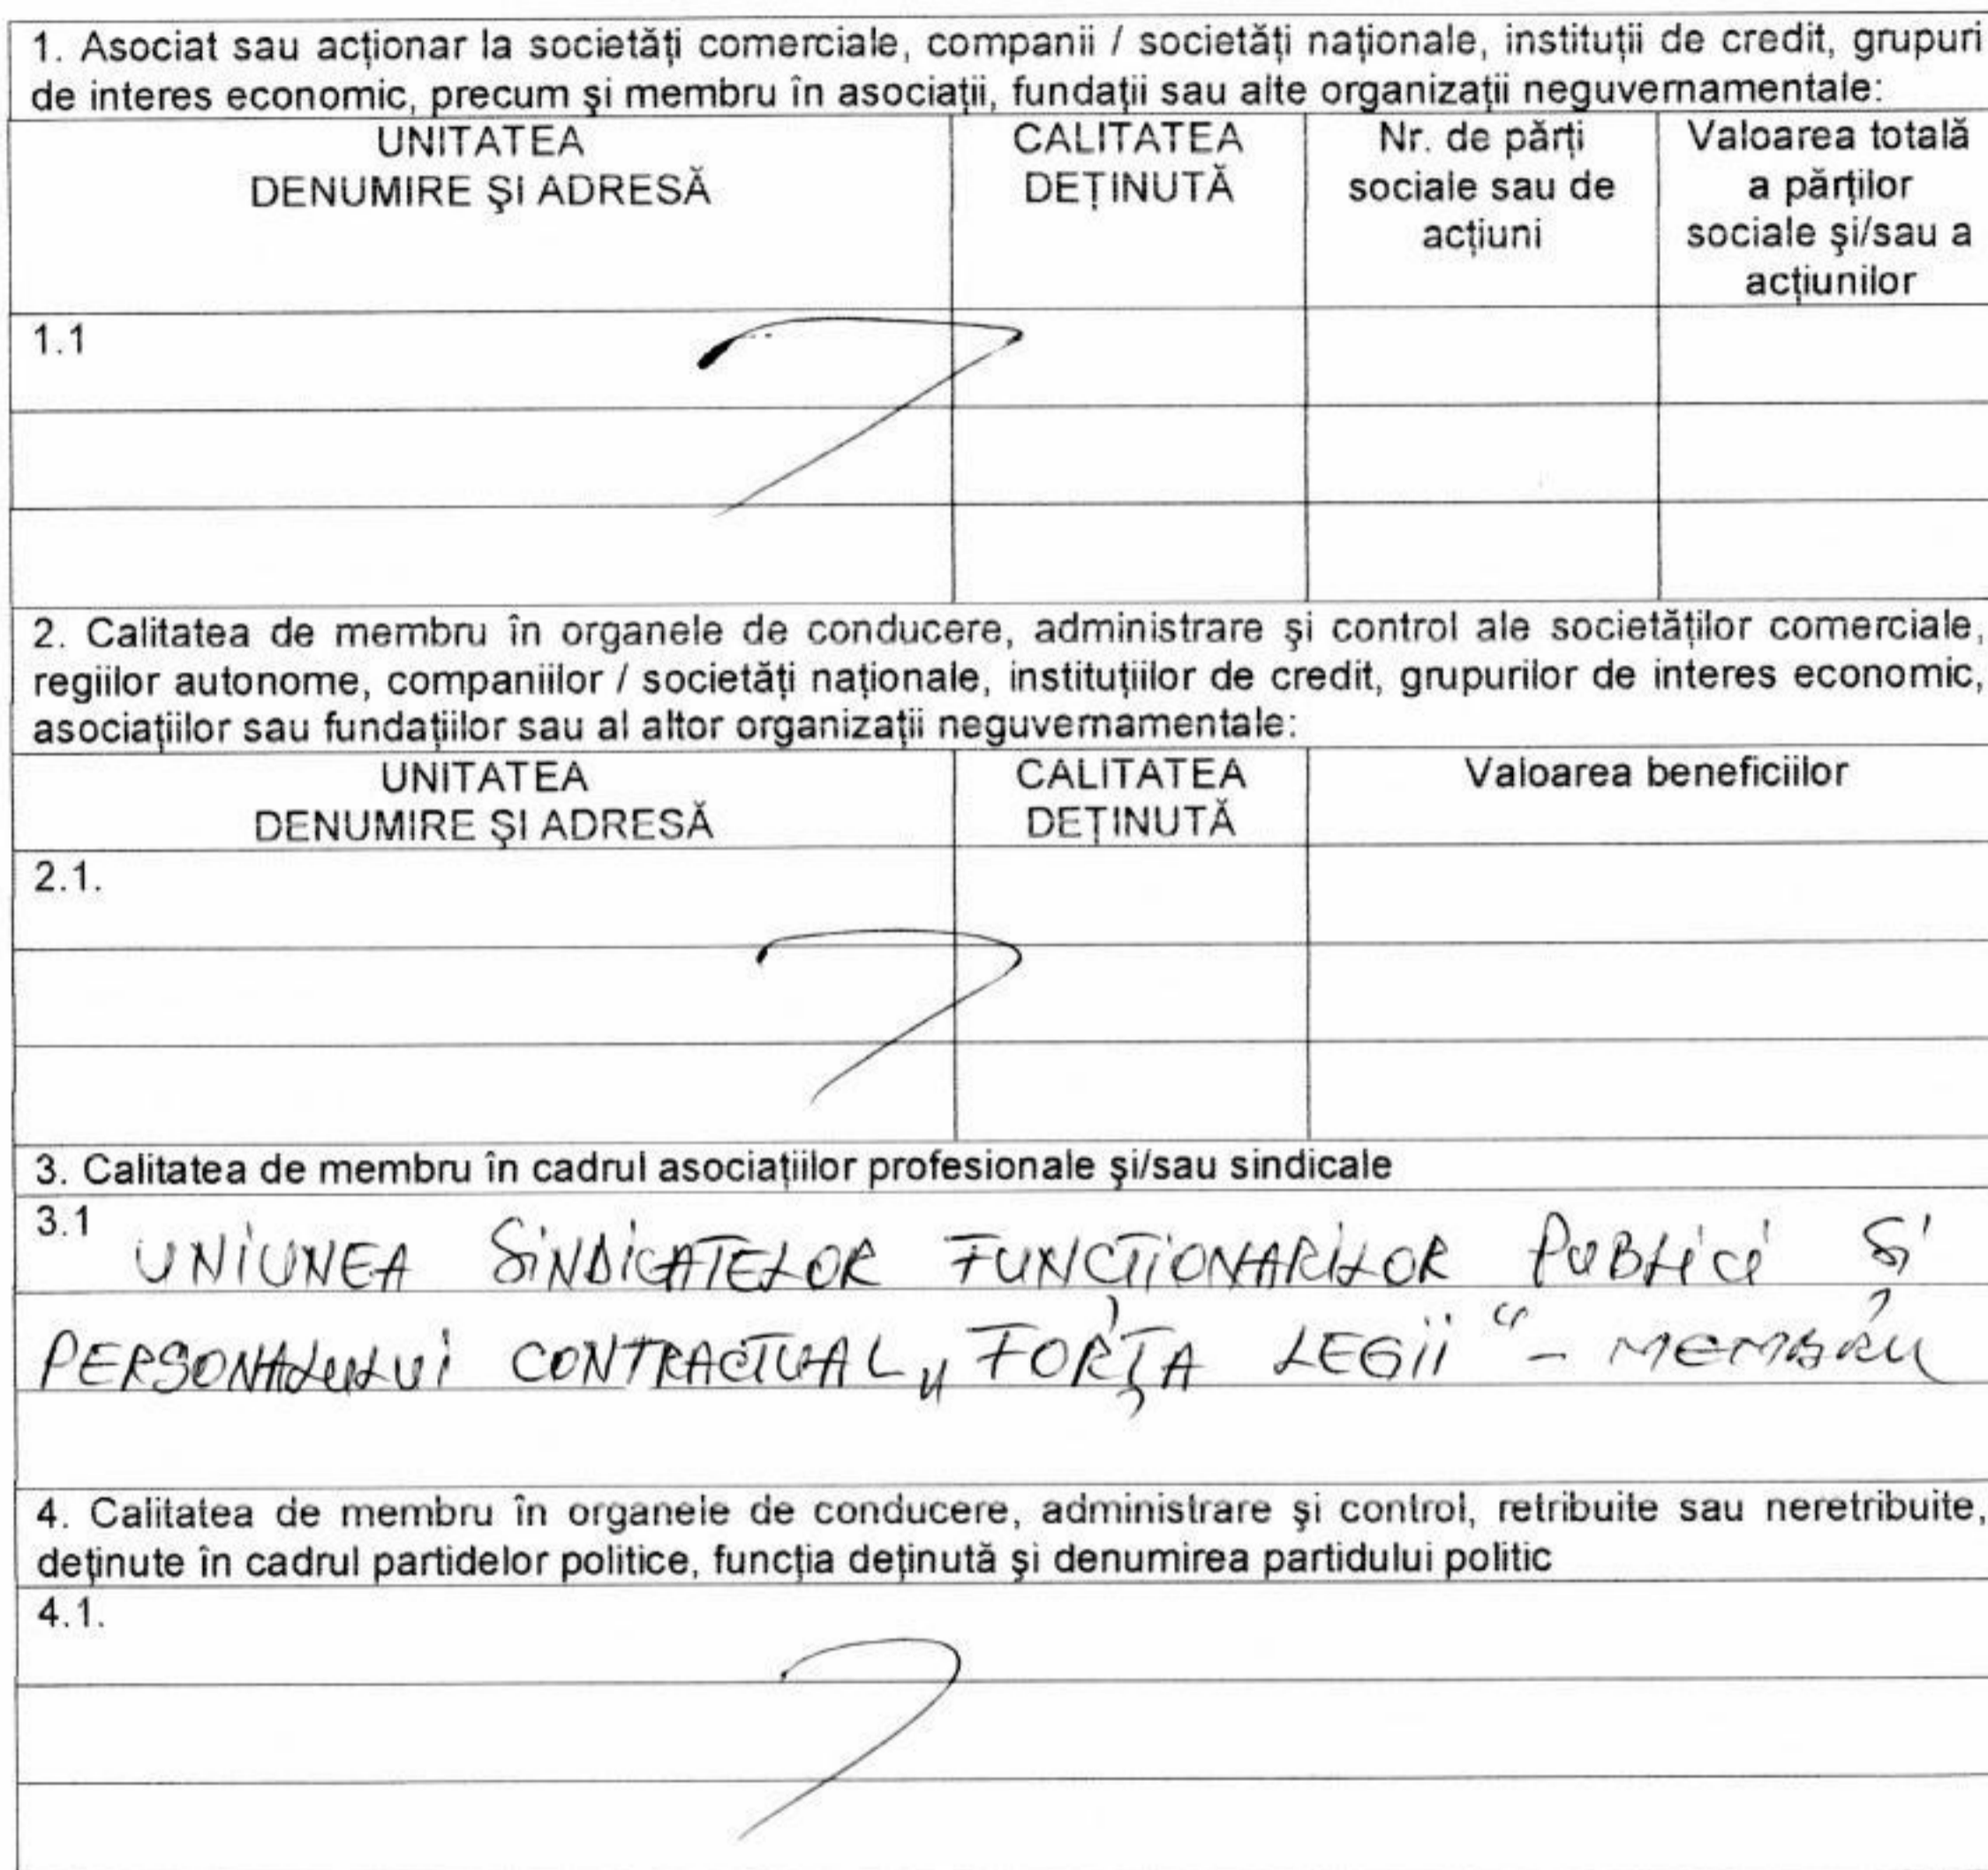 1. Asociat sau acționar la societăți comerciale, companii / societăți naționale, instituții de credit, grupuri
de interes economic, precum și membru în asociații, fundații sau alte organizații neguvernamentale:
UNITATEA
DENUMIRE ŞI ADRESĂ
CALITATEA
DEȚINUTĂ
Nr. de părți
sociale sau de
acțiuni
Valoarea totală
a părților
sociale și/sau a
acțiunilor
1.1
2. Calitatea de membru în organele de conducere, administrare și control ale societăților comerciale,
regiilor autonome, companiilor / societăți naționale, instituțiilor de credit, grupurilor de interes economic,
asociațiilor sau fundațiilor sau al altor organizații neguvernamentale:
UNITATEA
DENUMIRE ŞI ADRESĂ
CALITATEA
DEȚINUTĂ
Valoarea beneficiilor
2.1.
3. Calitatea de membru în cadrul asociațiilor profesionale și/sau sindicale
3.1
UNIUNEA SINDICATELOR FUNCȚIONARILOR PUBLICI ȘI
PERSONALULUI CONTRACTUAL „FORȚA LEGII" - MEMBRU
4. Calitatea de membru în organele de conducere, administrare și control, retribuite sau neretribuite,
deținute în cadrul partidelor politice, funcția deținută și denumirea partidului politic
4.1.